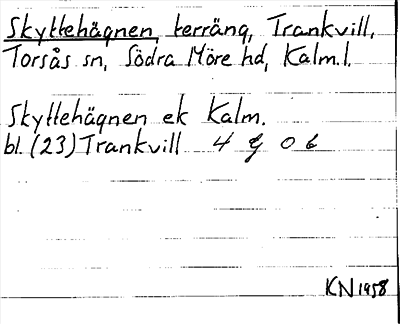 Skyttehägnen, terräng, Trankvill,
Torsås sn, Södra Möre hd, Kalm.l.
Skyttehägnen ek Kalm.
bl. (23) Trankvill 4 G 0 b
KN 1958